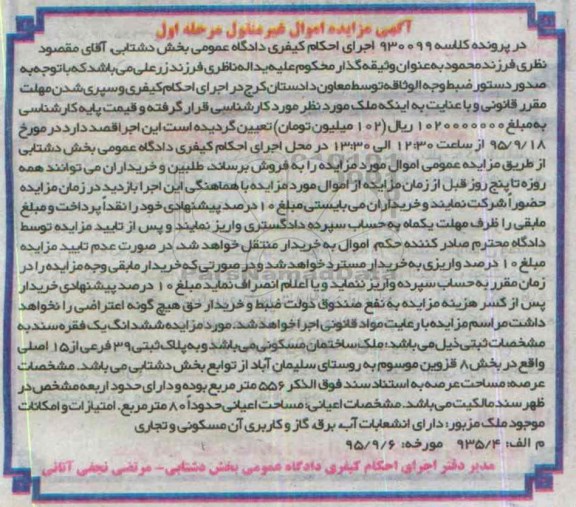 آگهی مزایده اموال غیرمنقول مرحله اول
در پرونده کلاسه ۹۳۰۰۹۹ اجرای احکام کیفری دادگاه عمومی بخش دشتابی، آقای مقصود
نظری فرزند محمود به عنوان وثیقه گذار محکوم علیه یداله ناظری فرزند زرعلی می باشد که با توجه به
صدور دستور ضبط وجه الوثاقه توسط معاون دادستان کرج در اجرای احکام کیفری و سپری شدن مهلت
مقرر قانونی و با عنایت به اینکه ملک مورد نظر مورد کارشناسی قرار گرفته و قیمت پایه کارشناسی
به مبلغ ۱۰۲۰۰۰۰۰۰۰ ریال (۱۰۲ میلیون تومان) تعیین گردیده است این اجرا قصد دارد در مورخ
۹۵/۹/۱۸ از ساعت ۱۲:۳۰ الی ۱۳:۳۰ در محل اجرای احکام کیفری دادگاه عمومی بخش دشتابی
از طریق مزایده عمومی اموال مورد مزایده را به فروش برساند، طلبین و خریداران می توانند همه
روزه تا پنج روز قبل از زمان مزایده از اموال مورد مزایده با هماهنگی این اجرا بازدید در زمان مزایده
حضوراً شرکت نمایند و خریداران می بایستی مبلغ ۱۰ درصد پیشنهادی خود را نقداً پرداخت و مبلغ
مابقی را ظرف مهلت یکماه به حساب سپرده دادگستری واریز نمایند و پس از تایید مزایده توسط
دادگاه محترم صادر کننده حکم، اموال به خریدار منتقل خواهد شد، در صورت عدم تایید مزایده
مبلغ ۱۰ درصد واریزی به خریدار مسترد خواهد شد و در صورتی که خریدار مابقی وجه مزایده را در
زمان مقرر به حساب سپرده واریز ننماید و یا اعلام انصراف نماید مبلغ ۱۰ درصد پیشنهادی خریدار
پس از کسر هزینه مزایده به نفع صندوق دولت ضبط و خریدار حق هیچ گونه اعتراضی را نخواهد
داشت مراسم مزایده با رعایت مواد قانونی اجرا خواهد شد. مورد مزایده ششدانگ یک فقره سند به
مشخصات ثبتی ذیل می باشد: ملک ساختمان مسکونی می باشد و به پلاک ثبتی ۳۹ فرعی از ۱۵ اصلی
واقع در بخش ۸ قزوین موسوم به روستای سلیمان آباد از توابع بخش دشتابی می باشد. مشخصات
عرصه: مساحت عرصه به استناد سند فوق الذکر ۵۵۶ متر مربع بوده و دارای حدود اربعه مشخص در
ظهر سند مالکیت می باشد. مشخصات اعیانی: مساحت اعیانی حدوداً ۸۰ متر مربع. امتیازات و امکانات
موجود ملک مزبور: دارای انشعابات آب، برق، گاز و کاربری آن مسکونی و تجاری
م الف: ۹۳۵/۴ مورخه: ۹۵/۹/۶
مدیر دفتر اجرای احکام کیفری دادگاه عمومی بخش دشتابی- مرتضی نجفی آتانی